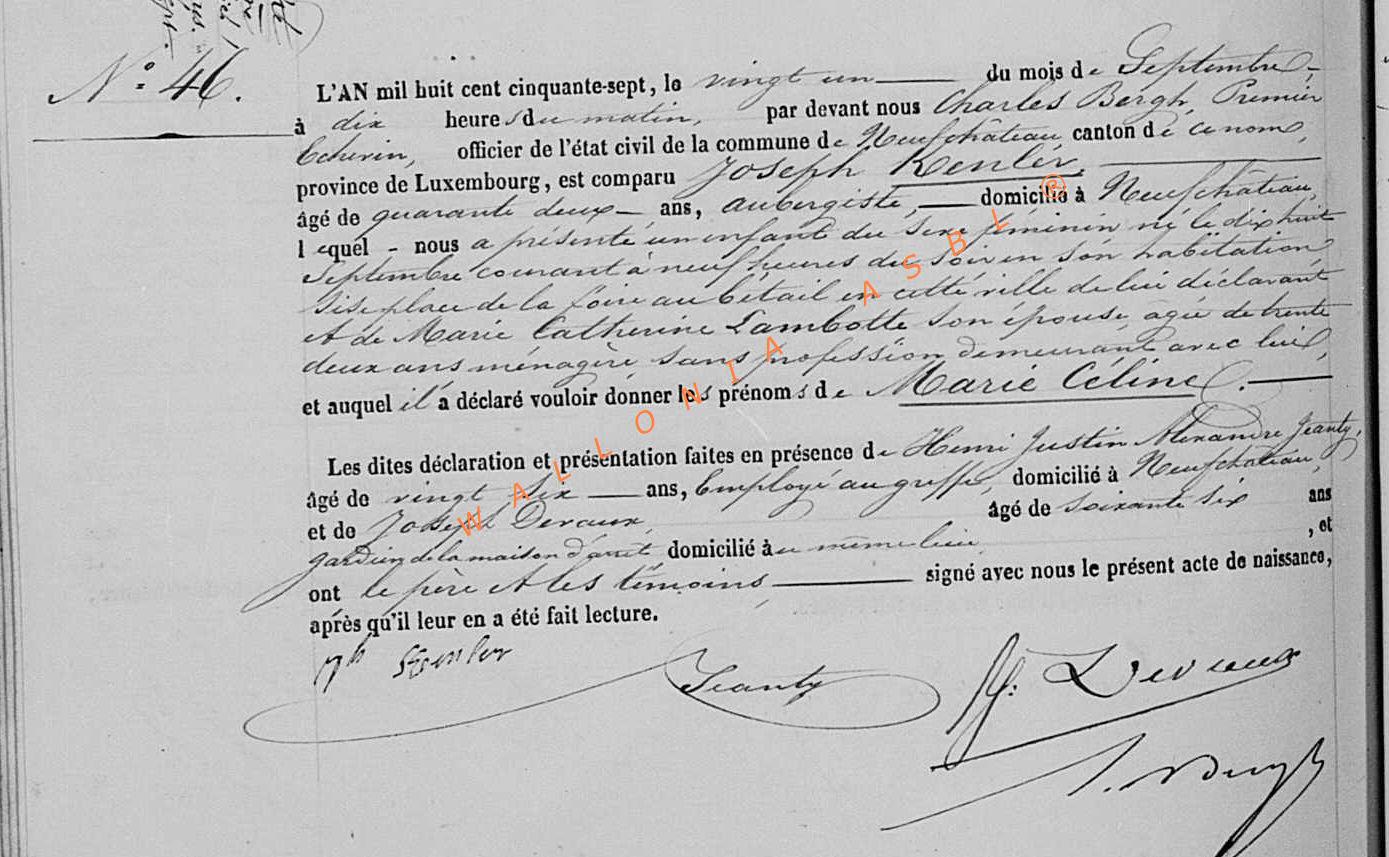 N° 46.
L'AN mil huit cent cinquante-sept, le vingt un du mois de Septembre,
à dix heures du matin, par devant nous Charles Bergh, Premier
Echevin, officier de l'état civil de la commune de Neufchâteau, canton de ce nom,
province de Luxembourg, est comparu Joseph Kenler,
âgé de quarante deux ans, aubergiste, domicilié à Neufchâteau,
lequel nous a présenté un enfant du sexe féminin né le dix huit
Septembre courant à neuf heures du soir en son habitation
sise place de la foire au bétail en cette ville de lui déclarant
et de Marie Catherine Lambotte son épouse, agée de trente
deux ans ménagère, sans profession demeurant avec lui,
et auquel il a déclaré vouloir donner les prénoms de Marie Céline.
Les dites déclaration et présentation faites en présence de Henri Justin Alexandre Jeanty,
âgé de vingt six ans, Employé au greffe, domicilié à Neufchâteau,
et de Joseph Devaux, âgé de soixante six ans
gardien de la maison d'arrêt domicilié au même lieu , et
ont le père et les témoins signé avec nous le présent acte de naissance,
après qu'il leur en a été fait lecture.
Jeanty
J. Devaux
WALLONIA ASBL ®